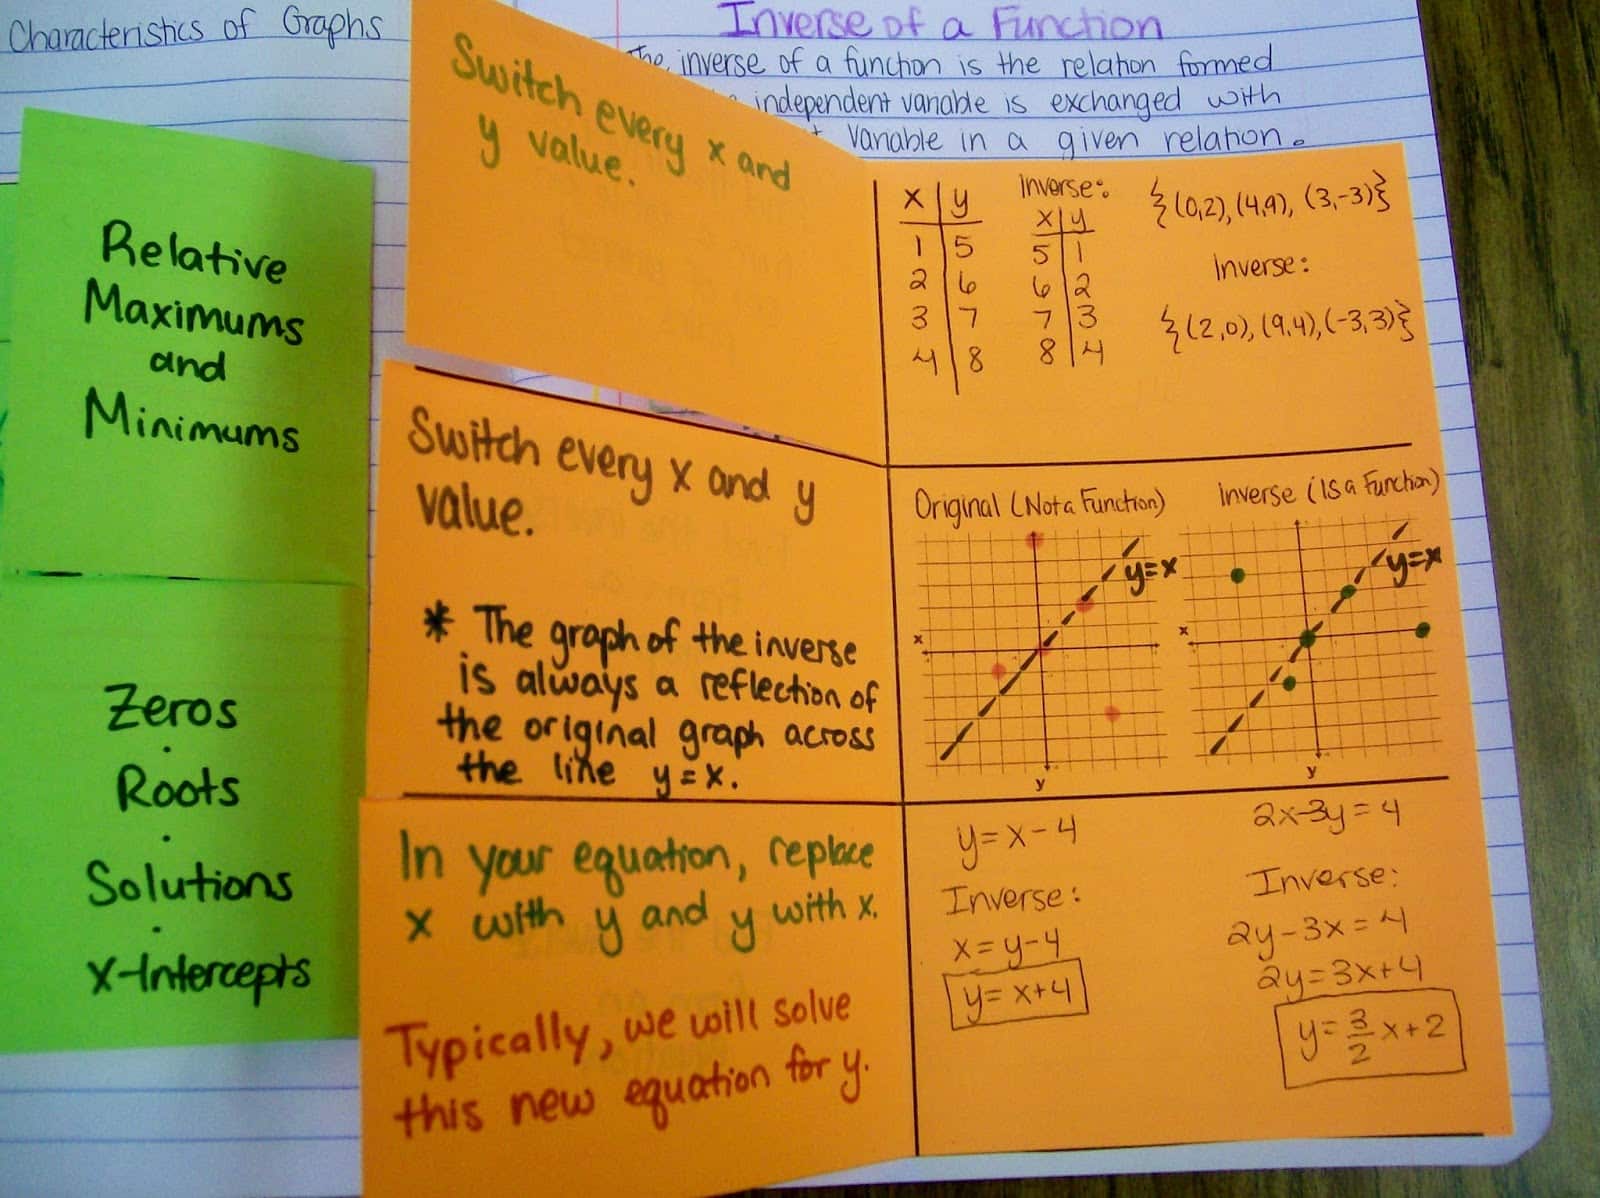 Characteristics of Graphs
Relative
Maximums
and
Minimums
Zeros
.
Roots
.
Solutions
.
X-Intercepts
Inverse of a Function
The inverse of a function is the relation formed
independent variable is exchanged with
variable in a given relation.
Switch every x and
y value.
x | y
1 | 5
2 | 6
3 | 7
4 | 8
Inverse:
x | y
5 | 1
6 | 2
7 | 3
8 | 4
{(0,2), (4,9), (3,-3)}
Inverse:
{(2,0), (9,4), (-3,3)}
Switch every x and y
value.
* The graph of the inverse
is always a reflection of
the original graph across
the line y=x.
Original (Not a Function)
y=x
x
y
Inverse (Is a Function)
y=x
x
y
In your equation, replace
x with y and y with x.
Typically, we will solve
this new equation for y.
y=x-4
Inverse:
x=y-4
y=x+4
2x-3y=4
Inverse:
2y-3x=4
2y=3x+4
y=3/2x+2